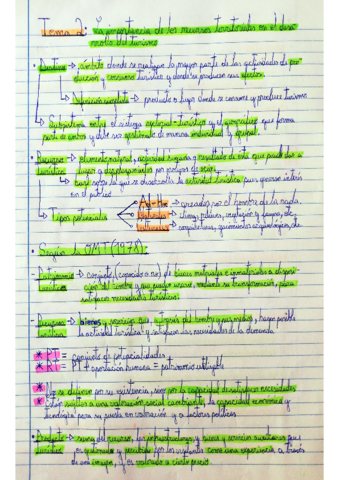 Tema 2: La importancia de los recursos territoriales en el desa-
rrollo del turismo
ámbito donde se realizan la mayor parte de las actividades de pro-
ducción y consumo turístico y donde se producen sus efectos.
Definición completa → producto o lugar donde se consume y produce turismo
Subsistema entre el sistema espacial-turístico y el geográfico que forma
parte de ambos y debe ser gestionado de manera individual y
Recurso turístico → elemento natural, actividad humana o resultado de esta que puede dar
lugar a desplazamientos por motivos de
base sobre la que se desarrolla la actividad turística pues genera interés
en el público
Tipos
creados por el hombre de la nada.
Naturales → clima, relieve, vegetación y fauna, etc
Culturales → arquitectura, yacimientos arqueológicos, etc
• Según la OMT (1978):
- Patrimonio turístico = conjunto, (conocido o no) de bienes materiales e inmateriales a disposi-
ción del hombre y que pueden usarse, mediante su transformación, para
satisfacer necesidades turísticas.
- Recurso turístico = bienes y servicios que, a través del hombre y sus medios, hacen posible
la actividad turística y satisfacen las necesidades de la demanda.
* PT = conjunto de potencialidades
* RT = PT + aportación humana = patrimonio utilizable
* No se definen por su existencia, sino por la capacidad de satisfacer necesidades
* Están sujetos a una valoración social cambiante, la capacidad económica y
tecnológica para su puesta en valoración y a factores políticos.
• Producto turístico → suma del recurso, las infraestructuras y bienes y servicios auxiliares que
por los viajantes como una experiencia, a través
de una imagen, y es valorado a cierto precio.